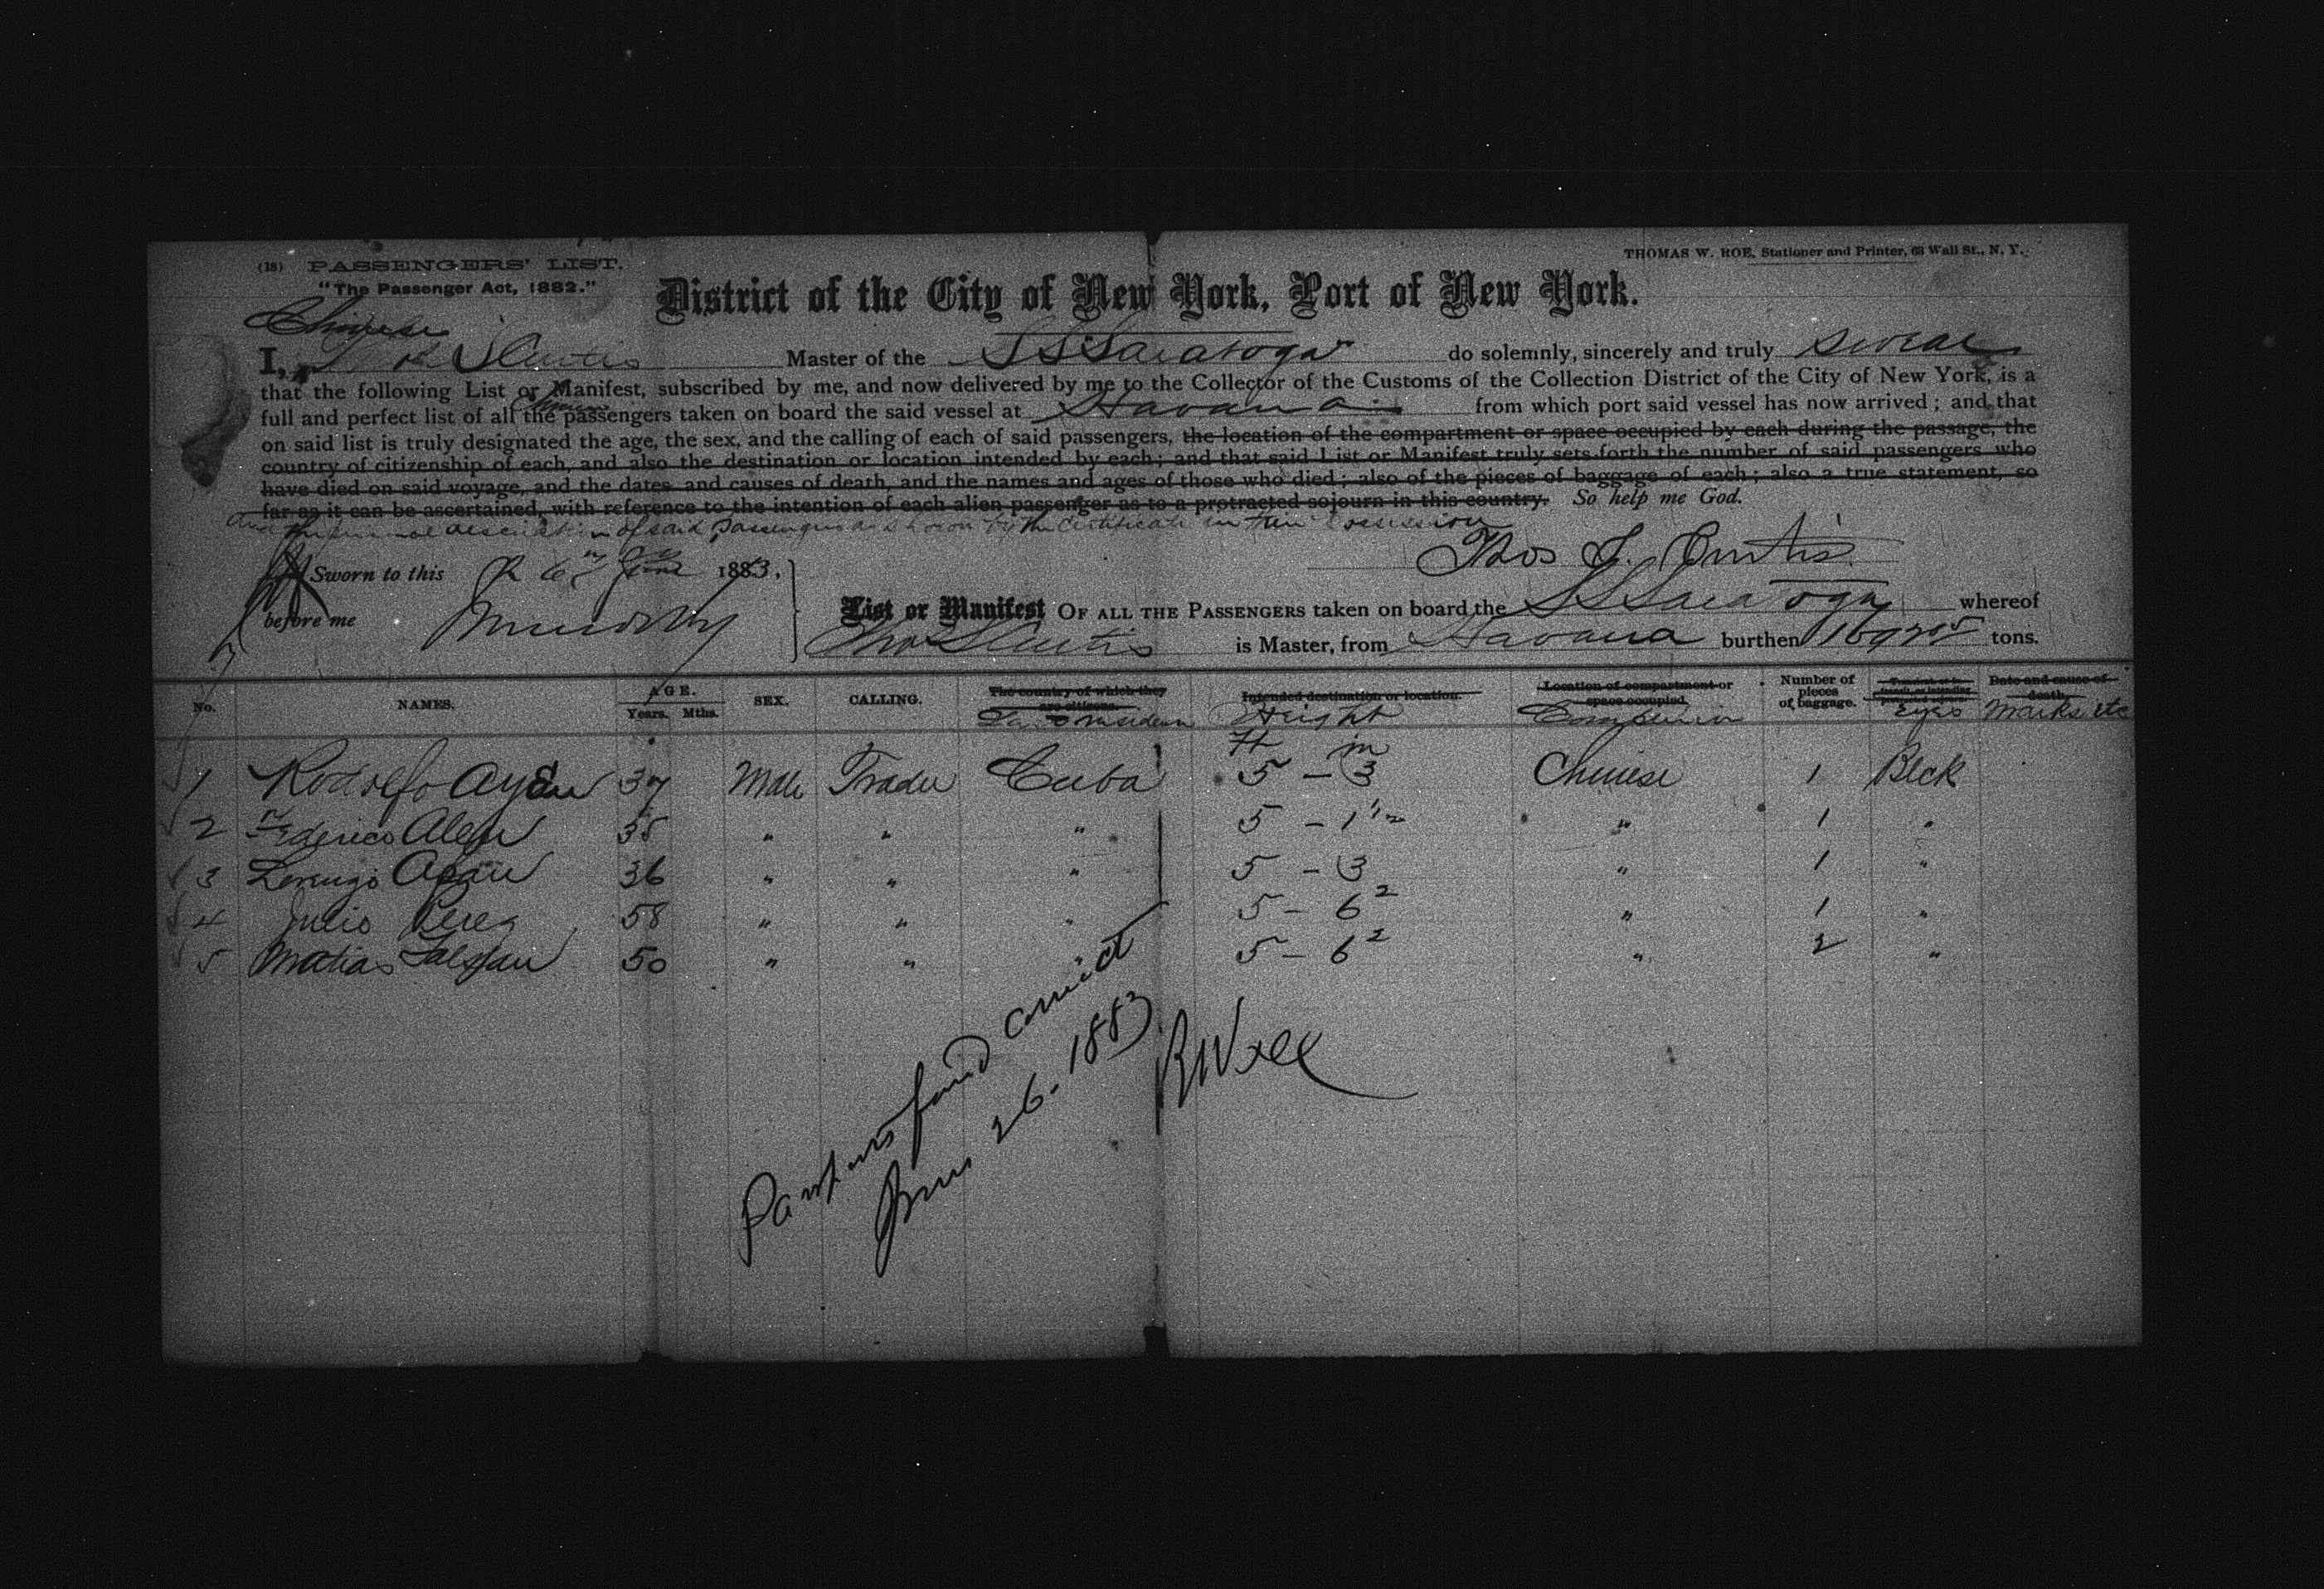 (18) PASSENGERS' LIST.
"The Passenger Act, 1882."
THOMAS W. ROE, Stationer and Printer, 63 Wall St., N. Y.
District of the City of New York, Port of New York.
Chinese
I, Curtis Master of the SS Saratoga do solemnly, sincerely and truly swear
that the following List or Manifest, subscribed by me, and now delivered by me to the Collector of the Customs of the Collection District of the City of New York, is a
full and perfect list of all the passengers taken on board the said vessel at Havana from which port said vessel has now arrived; and that
on said list is truly designated the age, the sex, and the calling of each of said passengers, the location of the compartment or space occupied by each during the passage, the
country of citizenship of each, and also the destination or location intended by each; and that said List or Manifest truly sets forth the number of said passengers who
have died on said voyage, and the dates and causes of death, and the names and ages of those who died; also of the pieces of baggage of each; also a true statement, so
far as it can be ascertained, with reference to the intention of each alien passenger as to a protracted sojourn in this country. So help me God.
and the personal description of said passengers as shown by the certificate in their possession
Thos S. Curtis
Sworn to this 26th June 1883,
before me
List or Manifest OF ALL THE PASSENGERS taken on board the SS Saratoga whereof
Thos S Curtis is Master, from Havana burthen tons.
No. NAMES. AGE. Years. Mths. SEX. CALLING. The country of which they are citizens. Intended destination or location. Height Location of compartment or space occupied. Number of pieces of baggage. Eyes Date and cause of death. Marks etc
Ft in
1 Rodolfo 37 Male Trader Cuba 5 - 3 Chinese 1 Blck
2 Federico 35 " " " 5 - 1 1/2 " 1 "
3 Lorenzo 36 " " " 5 - 3 " 1 "
4 Julio Perez 58 " " " 5 - 6 2 " 1 "
5 Matias 50 " " " 5 - 6 2 " 2 "
found correct
June 26. 1883